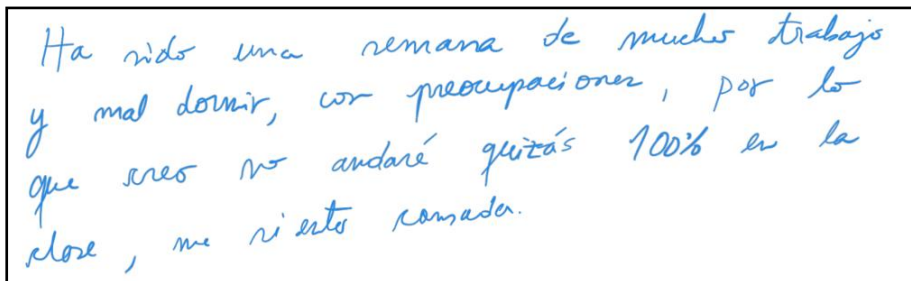 Ha sido una semana de mucho trabajo
y mal dormir, con preocupaciones, por lo
que creo no andaré quizás 100% en la
clase, me siento cansada.